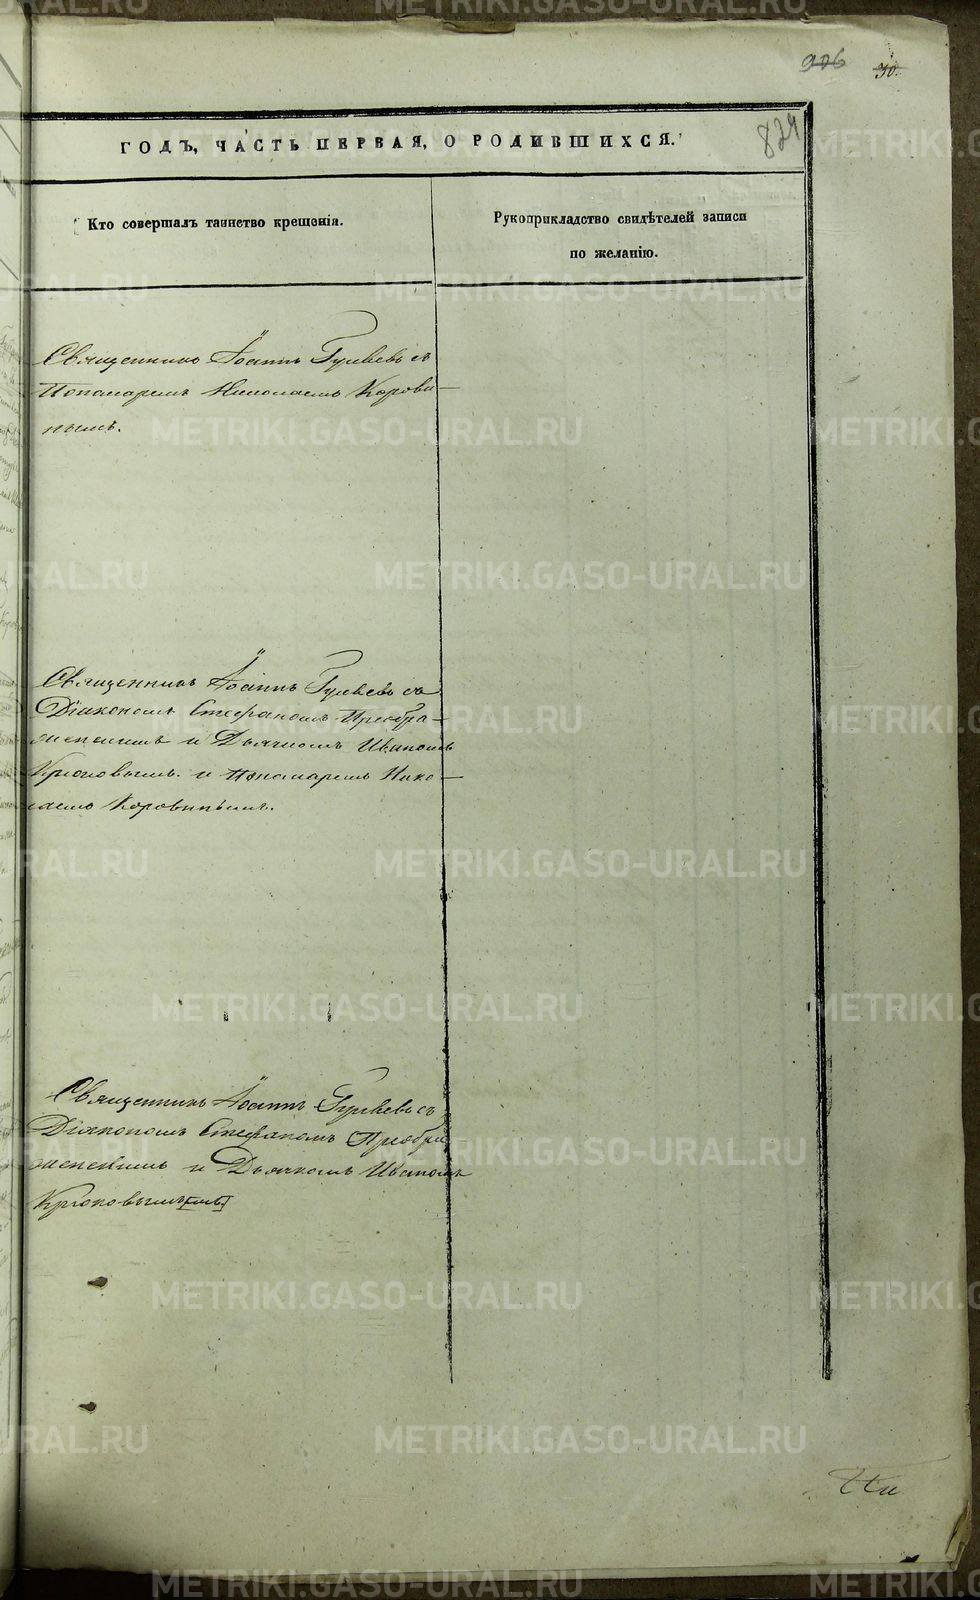 906 30.
829
ГОДЪ, ЧАСТЬ ПЕРВАЯ, О РОДИВШИХСЯ.
Кто совершалъ таинство крещенія.
Рукоприкладство свидѣтелей записи
по желанію.
Священникъ Іоаннъ Гуляевъ съ
Пономаремъ Николаемъ Корови-
нымъ.
Священникъ Іоаннъ Гуляевъ съ
Діакономъ Стефаномъ Преобра-
женскимъ и Дьячкомъ Иваномъ
Крюковымъ и Пономаремъ Нико-
лаемъ Коровинымъ.
Священникъ Іоаннъ Гуляевъ съ
Діакономъ Стефаномъ Преобра
женскимъ и Дьячкомъ Иваномъ
Крюковымъ[мъ]
METRIKI.GASO-URAL.RU